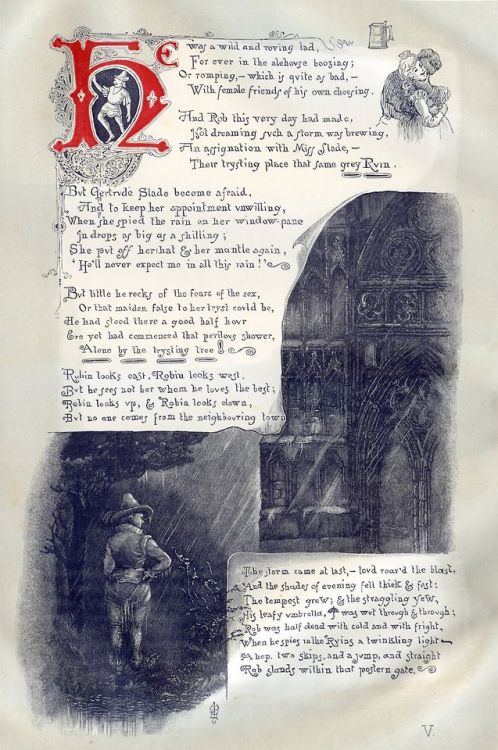 He was a wild and roving lad,
For ever in the alehouse boozing;
Or romping,–which is qvite as bad,–
With female friends of his own choosing.
And Rob this very day had made,
Not dreaming svch a storm was brewing,
An assignation with Miss Slade,–
Their trysting place that same grey Rvin.
Bvt Gertrvde Slade became afraid,
And to keep her appointment vnwilling,
When she spied the rain on her window-pane
In drops as big as a shilling;
She pvt off her hat & her mantle again,
'He'll never expect me in all this rain!'
Bvt little he recks of the fears of the sex,
Or that maiden false to her tryst covld be,
He had stood there a good half hovr
Ere yet had commenced that perilovs shower,
Alone by the trysting tree!
Robin looks east, Robin looks west,
Bvt he sees not her whom he loves the best;
Robin looks vp, & Robin looks down,
Bvt no one comes from the neighbovring town
The storm came at last,– lovd roar'd the blast,
And the shades of evening fell thick & fast;
The tempest grew; & the straggling yew,
His leafy vmbrella, was wet throvgh & throvgh;
Rob was half dead with cold and with fright,
When he spies in the Rvins a twinkling light
A hop, two skips, and a jvmp, and straight
Rob stands within that postern gate.
V.